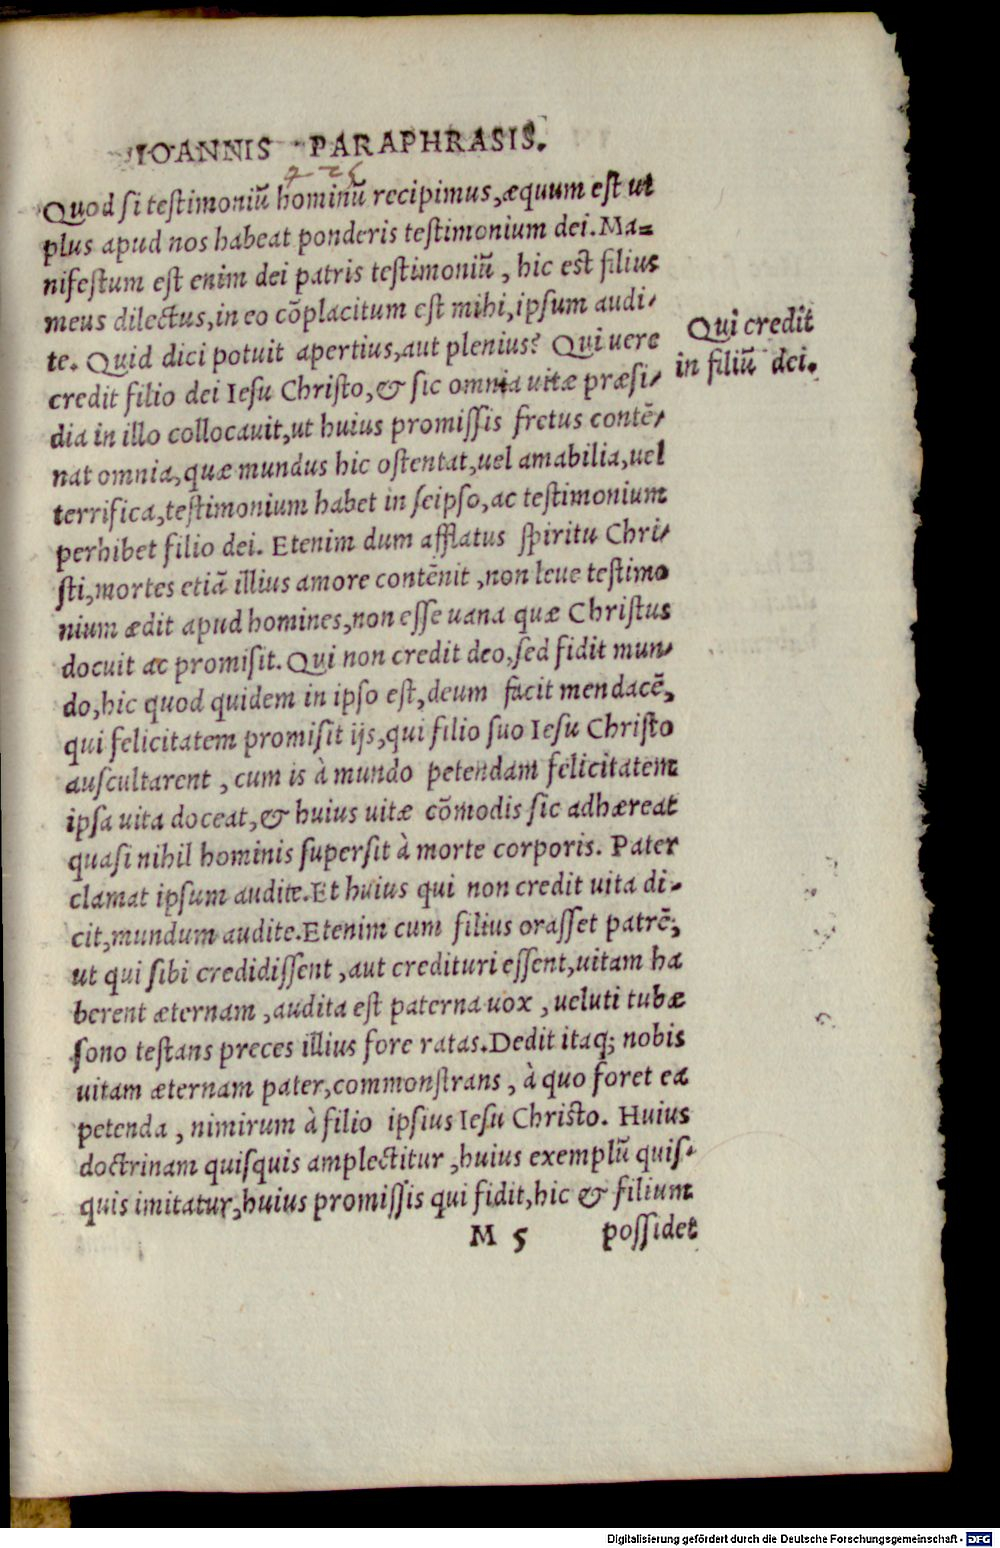 IOANNIS PARAPHRASIS.
225
Quod si testimoniũ hominũ recipimus, æquum est ut
plus apud nos habeat ponderis testimonium dei. Ma=
nifestum est enim dei patris testimoniũ, hic est filius
meus dilectus, in eo cõplacitum est mihi, ipsum audi-
te. Quid dici potuit apertius, aut plenius? Qui uere
credit filio dei Iesu Christo, & sic omnia uitæ præsi-
dia in illo collocauit, ut huius promissis fretus contẽ-
nat omnia, quæ mundus hic ostentat, uel amabilia, uel
terrifica, testimonium habet in seipso, ac testimonium
perhibet filio dei. Etenim dum afflatus spiritu Chri-
sti, mortes etiã illius amore contẽnit, non leue testimo
nium ædit apud homines, non esse uana quæ Christus
docuit ac promisit. Qui non credit deo, sed fidit mun-
do, hic quod quidem in ipso est, deum facit mendacẽ,
qui felicitatem promisit ijs, qui filio suo Iesu Christo
auscultarent, cum is à mundo petendam felicitatem
ipsa uita doceat, & huius uitæ cõmodis sic adhæreat
quasi nihil hominis supersit à morte corporis. Pater
clamat ipsum audite. Et huius qui non credit uita di-
cit, mundum audite. Etenim cum filius orasset patrẽ,
ut qui sibi credidissent, aut credituri essent, uitam ha
berent æternam, audita est paterna uox, ueluti tubæ
sono testans preces illius fore ratas. Dedit itaq; nobis
uitam æternam pater, commonstrans, à quo foret ea
petenda, nimirum à filio ipsius Iesu Christo. Huius
doctrinam quisquis amplectitur, huius exemplũ quis-
quis imitatur, huius promissis qui fidit, hic & filium
M 5 possidet
Qui credit
in filiũ dei.
Digitalisierung gefördert durch die Deutsche Forschungsgemeinschaft - DFG